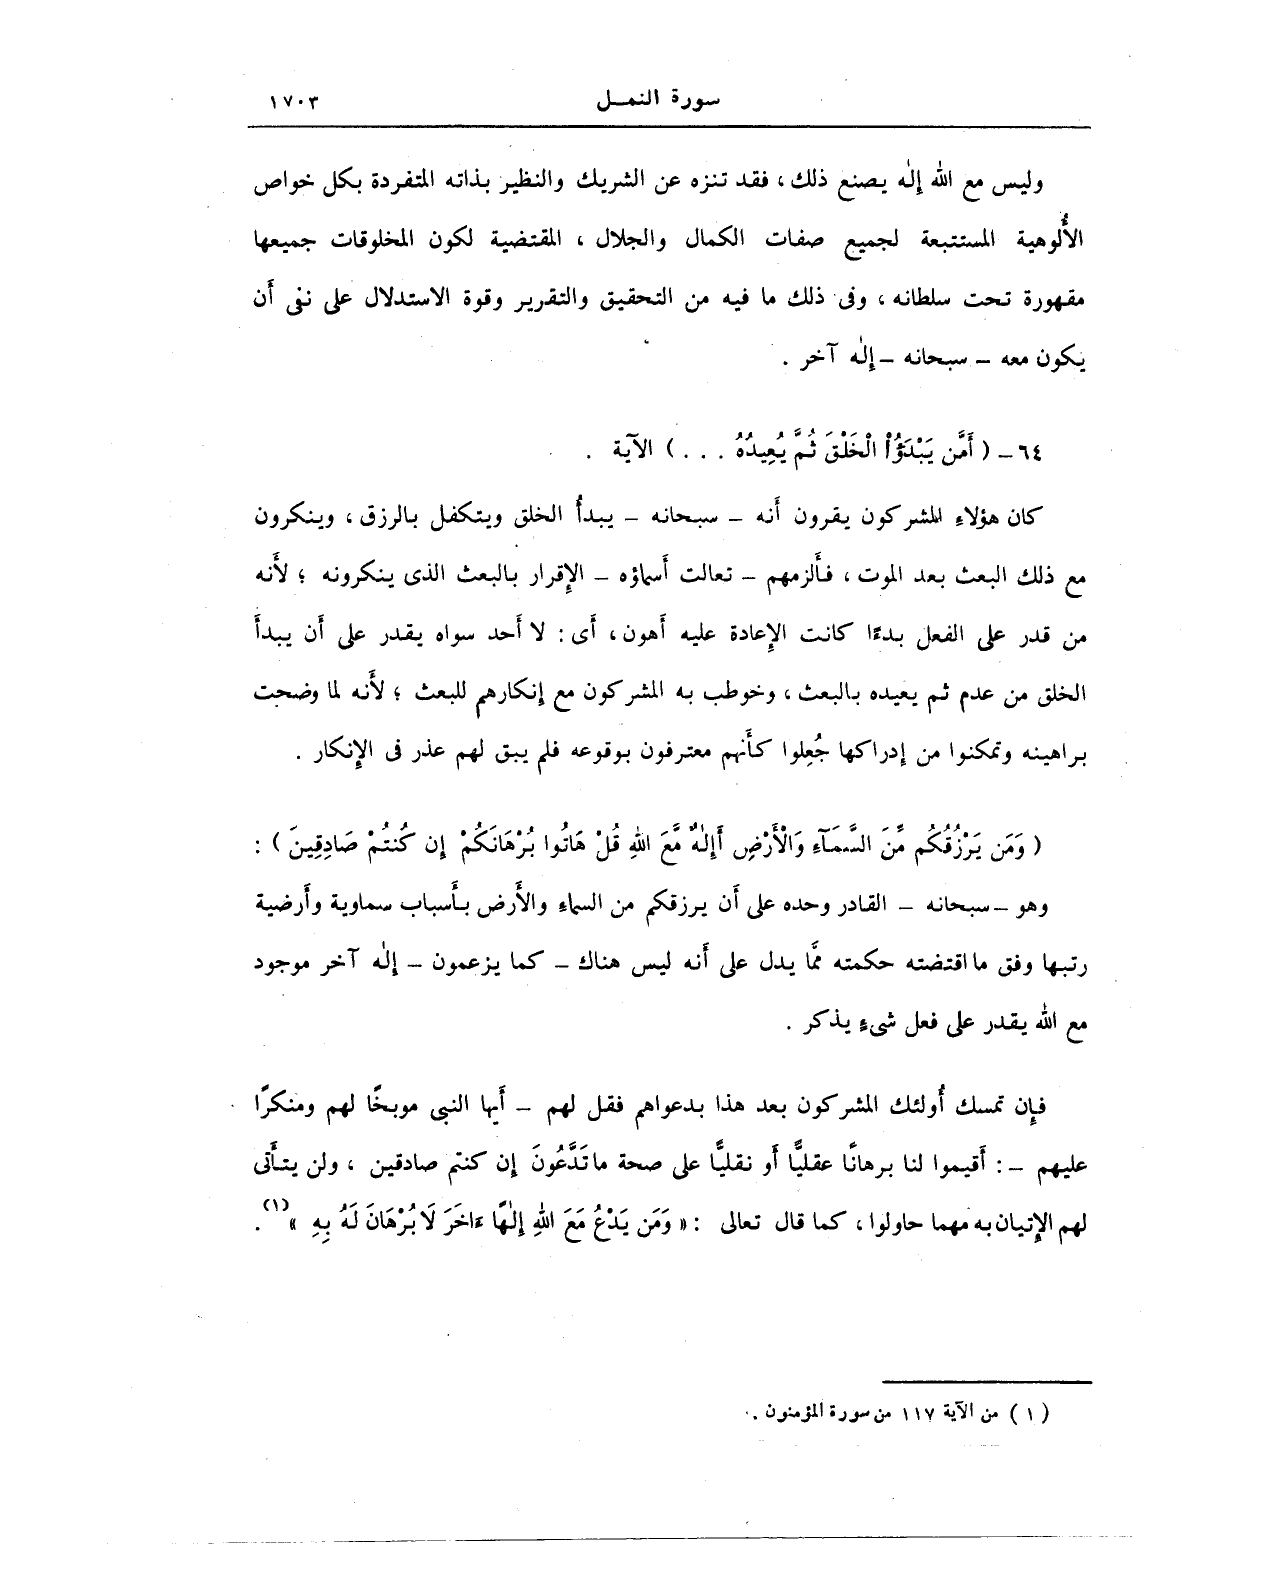 سورة النمل ١٧٠٣
وليس مع الله إلٰه يصنع ذلك ، فقد تنزه عن الشريك والنظير بذاته المتفردة بكل خواص
الأُلوهية المستتبعة لجميع صفات الكمال والجلال ، المقتضية لكون المخلوقات جميعها
مقهورة تحت سلطانه ، وفى ذلك ما فيه من التحقيق والتقرير وقوة الاستدلال على نفى أَن
يكون معه – سبحانه – إلٰه آخر .
٦٤ – ( أَمَّن يَبْدَؤُاْ الْخَلْقَ ثُمَّ يُعِيدُهُ . . . ) الآية .
كان هؤلاء المشركون يقرون أَنه – سبحانه – يبدأُ الخلق ويتكفل بالرزق ، وينكرون
مع ذلك البعث بعد الموت ، فأَلزمهم – تعالت أَسماؤه – الإقرار بالبعث الذى ينكرونه ؛ لأَنه
من قدر على الفعل بدءًا كانت الإعادة عليه أَهون ، أَى : لا أَحد سواه يقدر على أَن يبدأَ
الخلق من عدم ثم يعيده بالبعث ، وخوطب به المشركون مع إنكارهم للبعث ؛ لأَنه لما وضحت
براهينه وتمكنوا من إدراكها جُعِلوا كأَنهم معترفون بوقوعه فلم يبق لهم عذر فى الإنكار .
( وَمَن يَرْزُقُكُم مِّنَ السَّمَآءِ وَالْأَرْضِ أَإِلٰهٌ مَّعَ اللهِ قُلْ هَاتُوا بُرْهَانَكُمْ إِن كُنتُمْ صَادِقِينَ ) :
وهو – سبحانه – القادر وحده على أَن يرزقكم من السماء والأَرض بأَسباب سماوية وأَرضية
رتبها وفق ما اقتضته حكمته ممَّا يدل على أَنه ليس هناك – كما يزعمون – إلٰه آخر موجود
مع الله يقدر على فعل شىءٍ يذكر .
فإن تمسك أُولئك المشركون بعد هذا بدعواهم فقل لهم – أَيها النبى موبخًا لهم ومنكرًا
عليهم – : أَقيموا لنا برهانًا عقليًّا أَو نقليًّا على صحة ما تَدَّعُونَ إن كنتم صادقين ، ولن يتأَتى
لهم الإتيان به مهما حاولوا ، كما قال تعالى : « وَمَن يَدْعُ مَعَ اللهِ إِلٰهًا ءَاخَرَ لَا بُرْهَانَ لَهُ بِهِ » (١) .
( ١ ) من الآية ١١٧ من سورة المؤمنون .